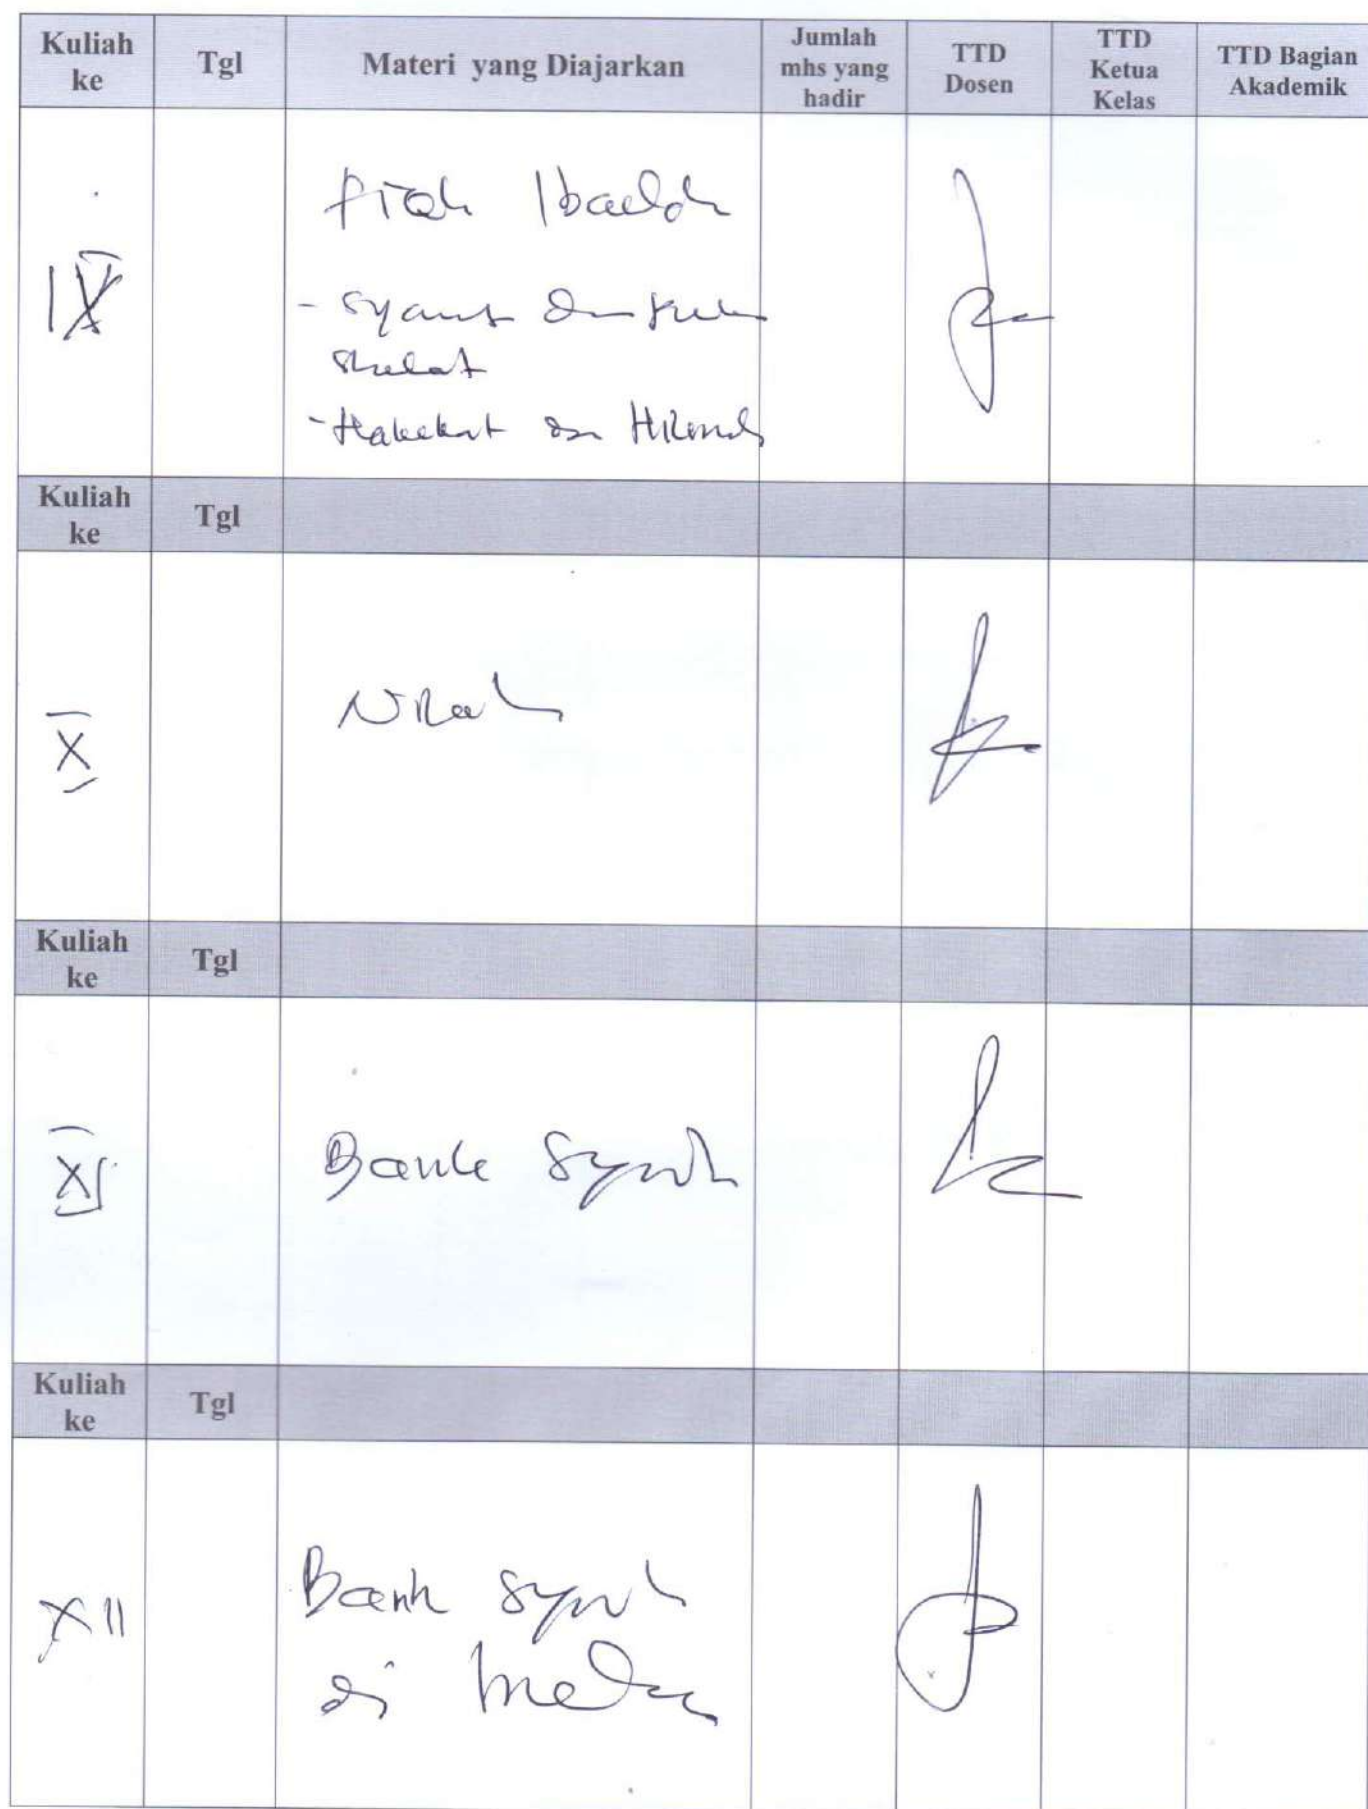 Kuliah ke Tgl Materi yang Diajarkan Jumlah mhs yang hadir TTD Dosen TTD Ketua Kelas TTD Bagian Akademik
IX
Fiqh Ibadah
- Syarat dan
Shalat
- Hakekat dan Hikmah
Kuliah ke Tgl
X
Nikah
Kuliah ke Tgl
XI
Bank Syariah
Kuliah ke Tgl
XII
Bank Syariah
di